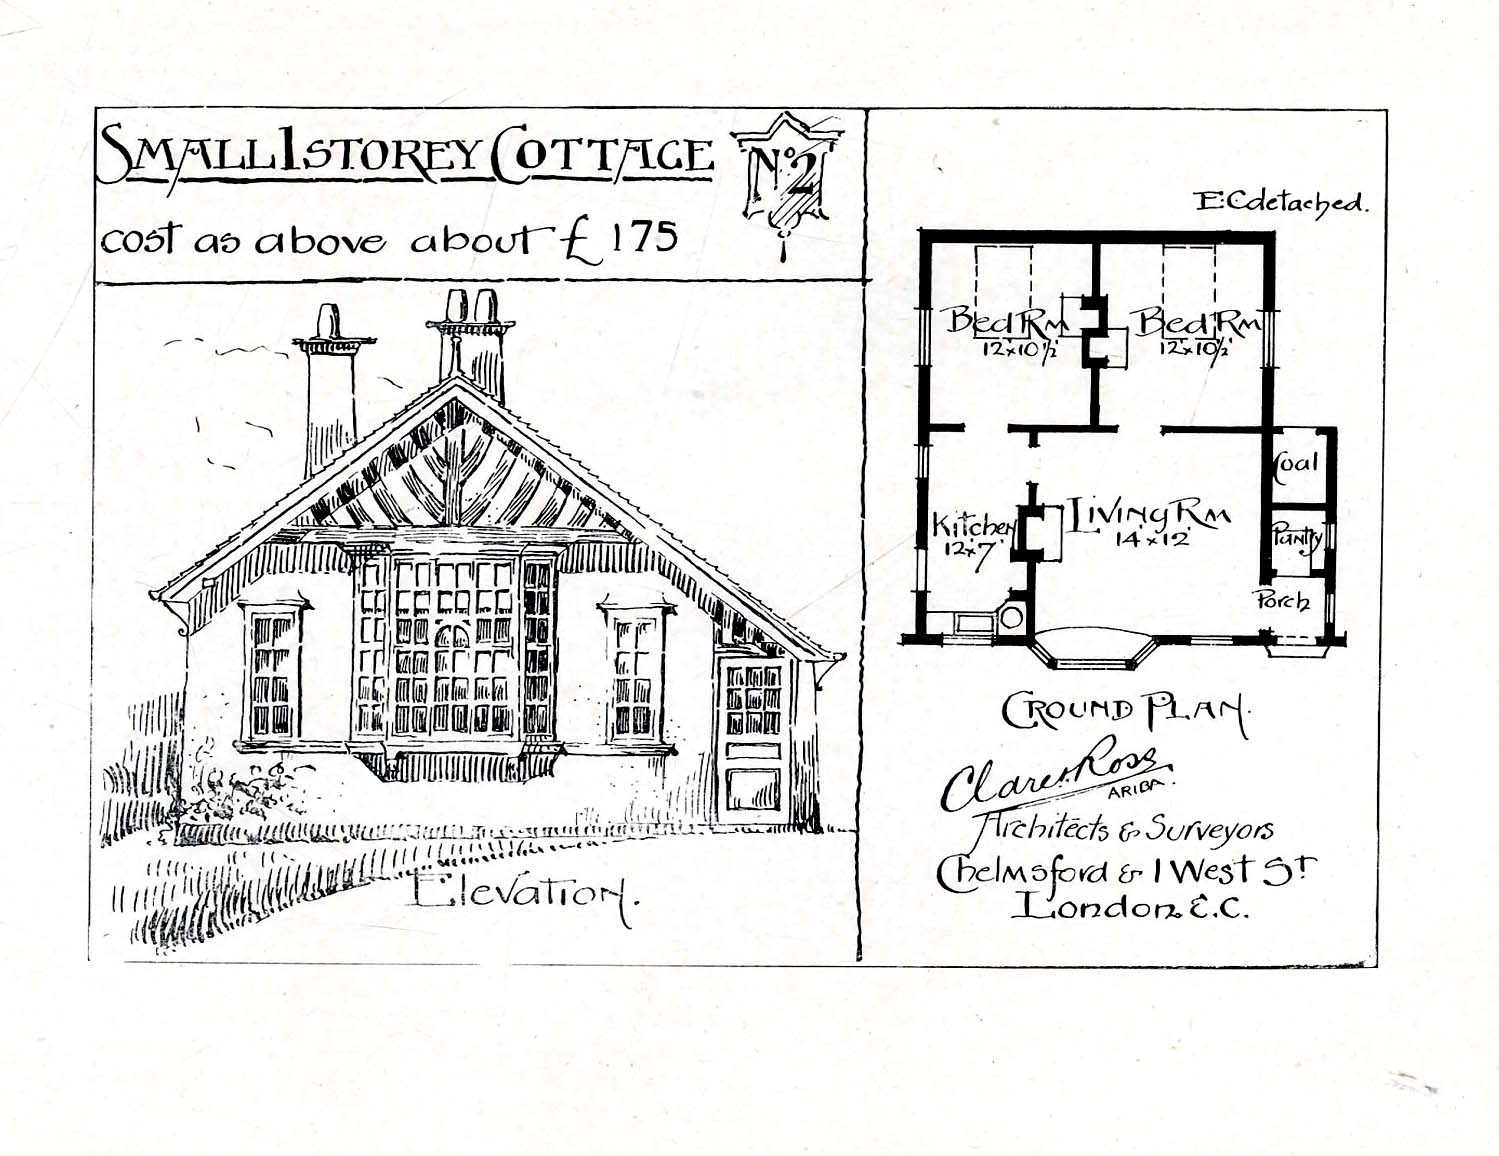 SMALL 1 STOREY COTTAGE
Nº 2
cost as above about £175
Elevation.
E.C detached.
Bed Rm
12 x 10 1/2'
Bed Rm
12 x 10 1/2'
Coal
Kitchen
12' x 7'
Living Rm
14' x 12'
Pantry
Porch
GROUND PLAN.
Clare & Ross
ARIBA.
Architects & Surveyors
Chelmsford & 1 West St
London. E.C.